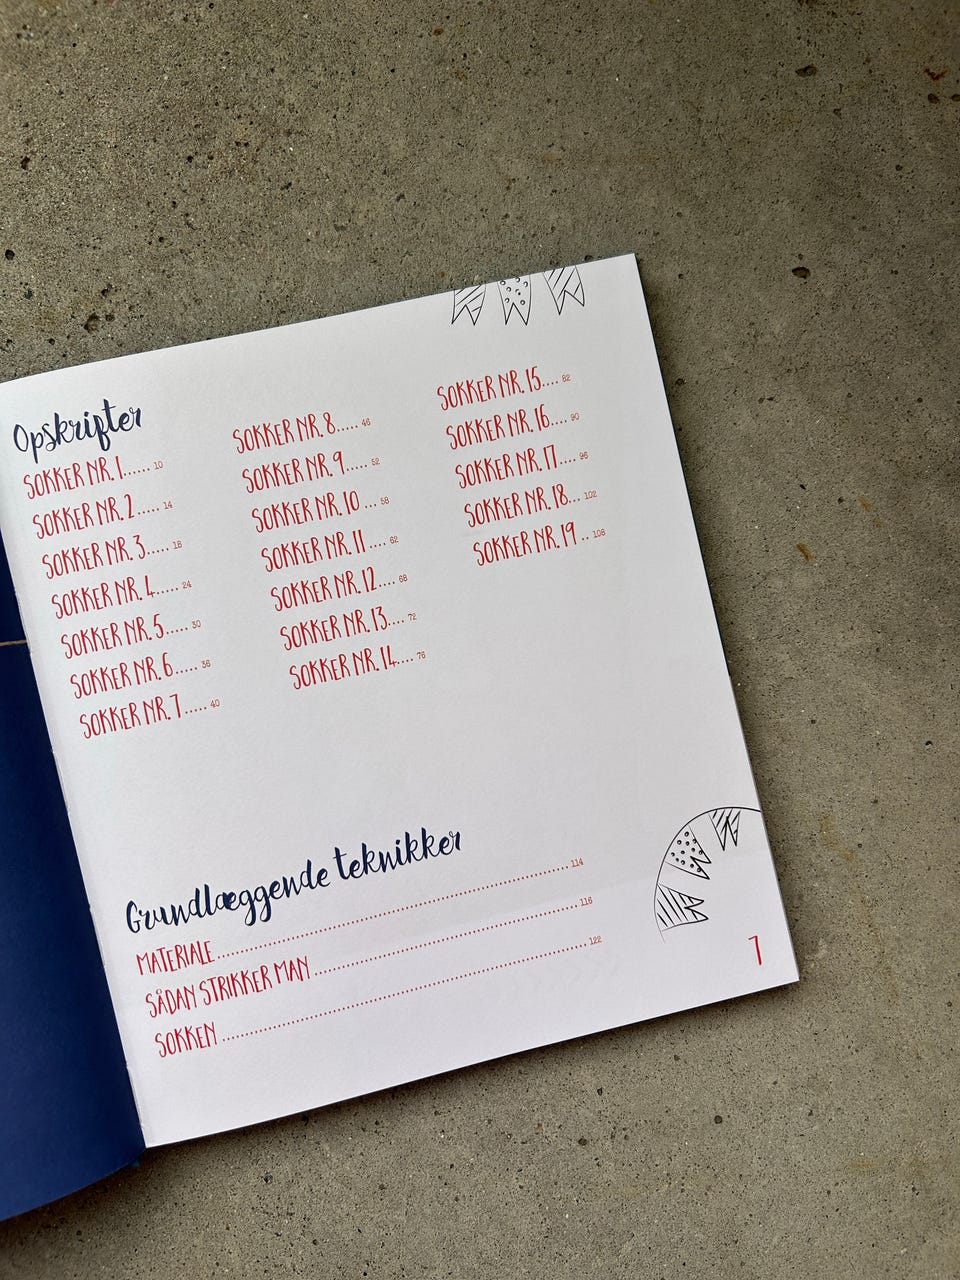 Opskrifter
SOKKER NR. 1...... 10
SOKKER NR. 2..... 14
SOKKER NR. 3..... 18
SOKKER NR. 4..... 24
SOKKER NR. 5..... 30
SOKKER NR. 6..... 36
SOKKER NR. 7..... 40
SOKKER NR. 8..... 46
SOKKER NR. 9..... 52
SOKKER NR. 10 ... 58
SOKKER NR. 11 .... 62
SOKKER NR. 12.... 68
SOKKER NR. 13.... 72
SOKKER NR. 14.... 76
SOKKER NR. 15.... 82
SOKKER NR. 16.... 90
SOKKER NR. 17.... 96
SOKKER NR. 18... 102
SOKKER NR. 19 .. 108
Grundlæggende teknikker
MATERIALE ........................................ 114
SÅDAN STRIKKER MAN ........................................ 116
SOKKEN ........................................ 122
7